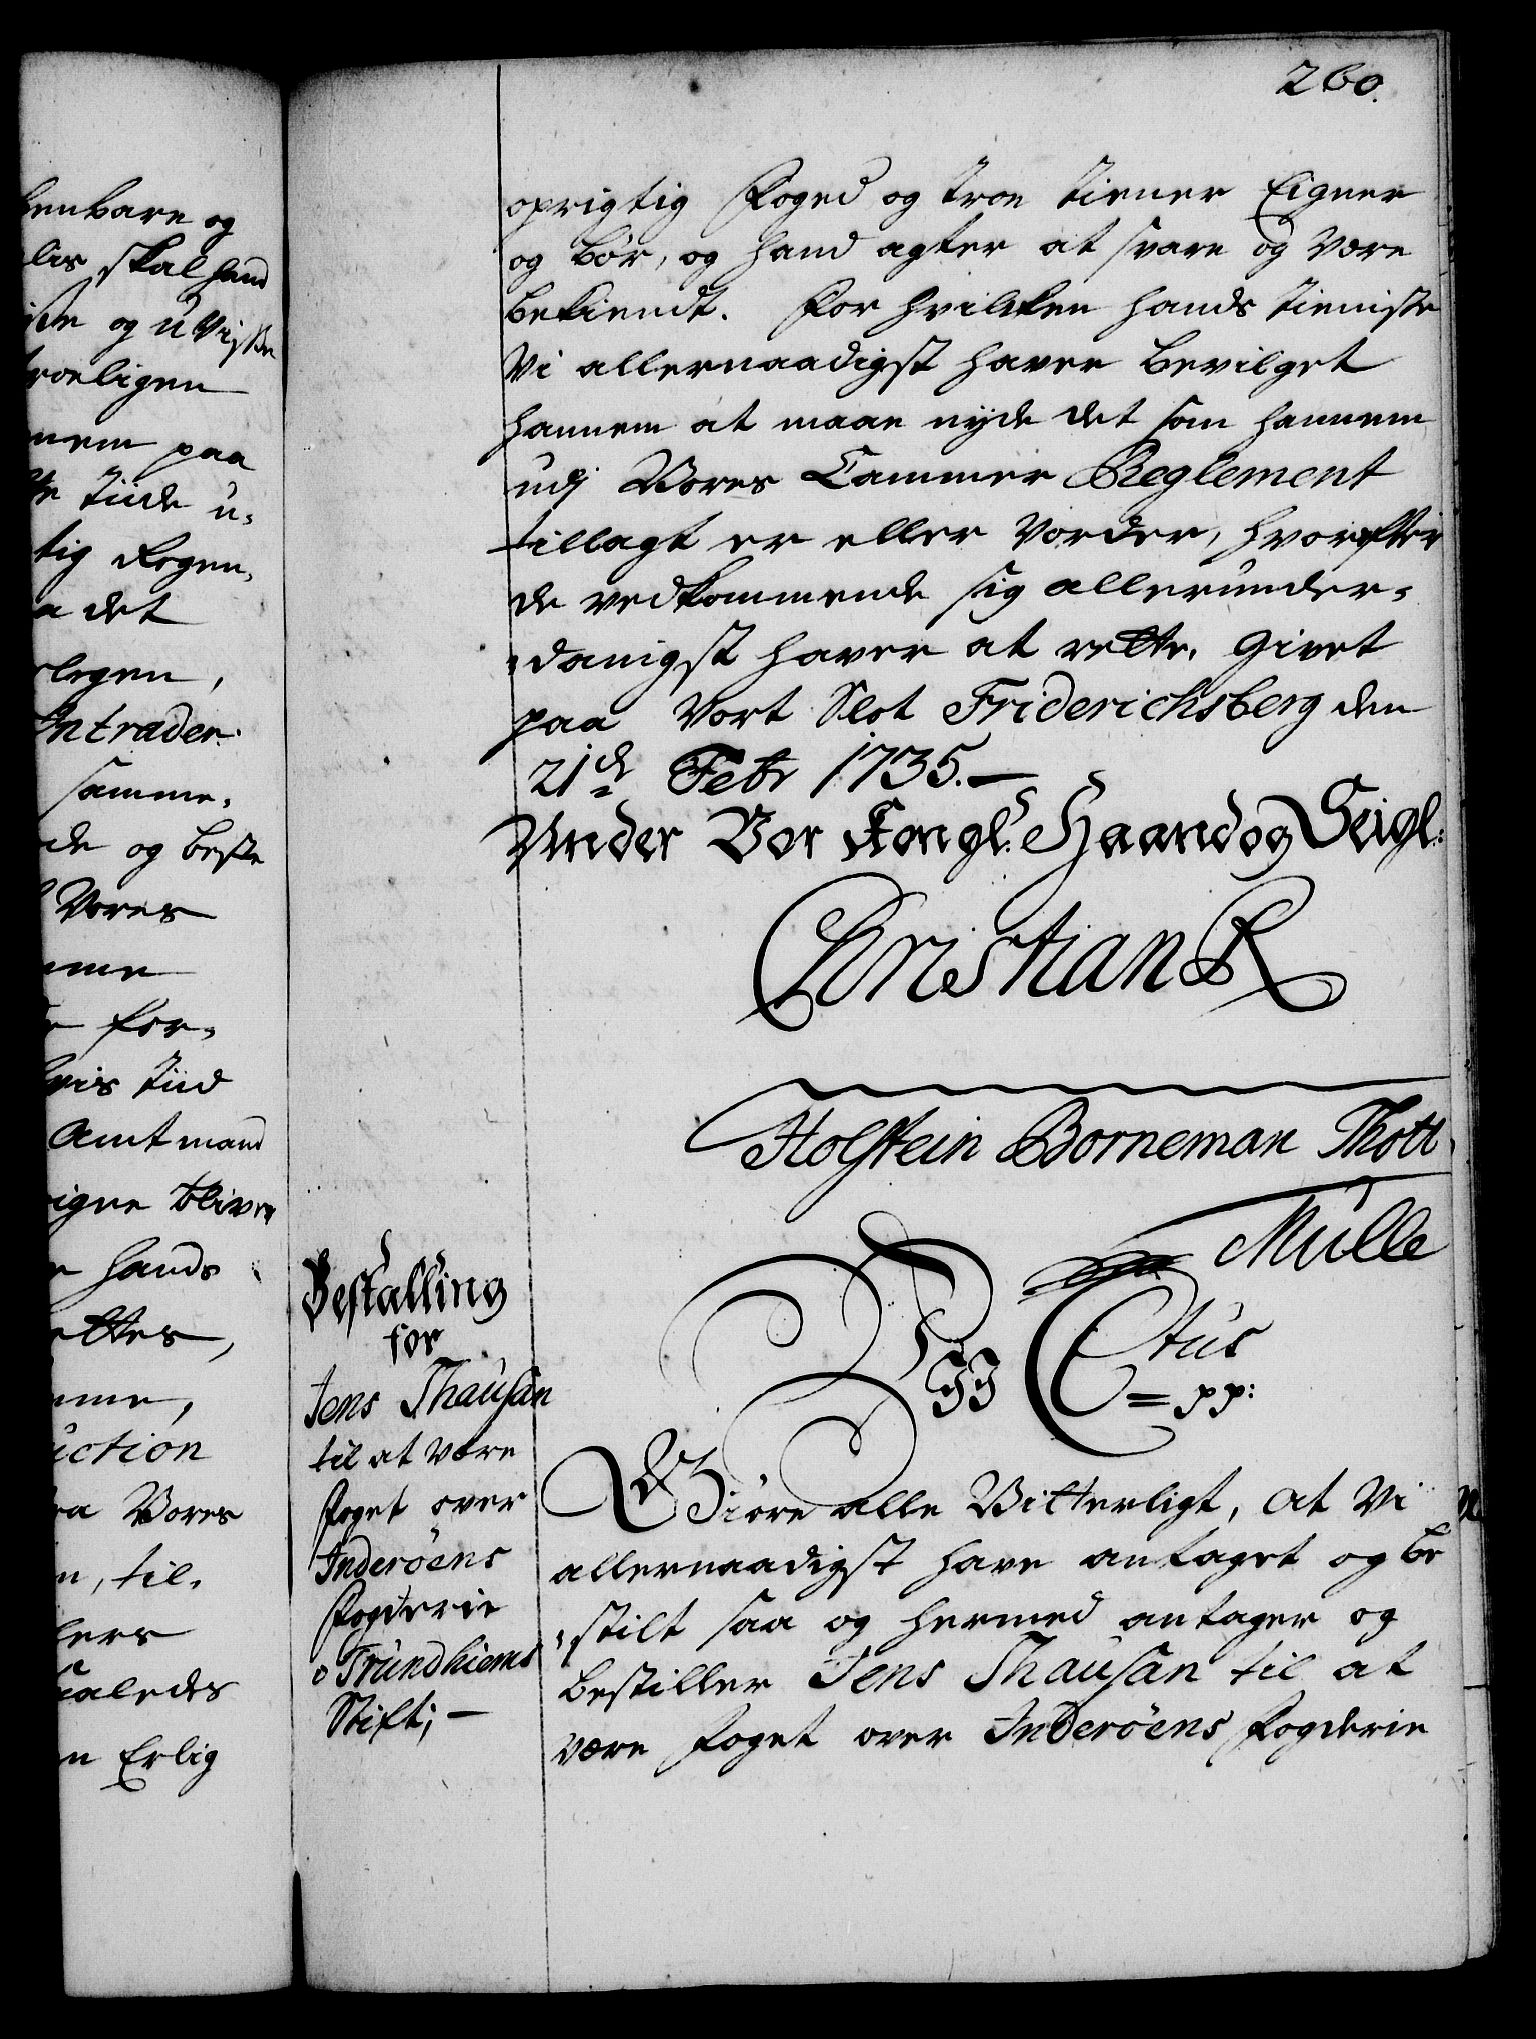 260.
henbare og
lis skal hand
og uvisse
troeligen
nem paa
tiide u-
tig Regen,
a det
legen,
Intrader.
samme,
de og beste
Vores
me
for-
vis tiid
Amtmand
igne bliver
hands
ettes,
mme,
uction
Vores
n, til.
lers
saaledes
n Erlig
oprigtig Foged og troe tiener Eigner
og bør, og hand agter at svare og være
bekiendt. For hvilken hands tieniste
Vi allernaadigst haver bevilget
hannem at maae nyde det som hannem
udj Vores Cammer Reglement
tillagt er eller vorder, hvorefter
de vedkommende sig allerunder-
danigst haver at rette. Givet
paa Vort Slot Friderichsberg den
21de Febr 1735.—
Under Vor Kongl: Haand og Seigl:
Christian R
Holstein Borneman Thott
Mülle
Bestalling
for
Jens Thausan
til at være
Foget over
Inderöens
Fogderie
Trundhiems
Stift; —
Wii C6tus
= pp:
Giøre alle Vitterligt, at Vi
allernaadigst have antaget og be
stilt saa og hermed antager og
bestiller Jens Thausan til at
være Foget over Inderöens Fogderie